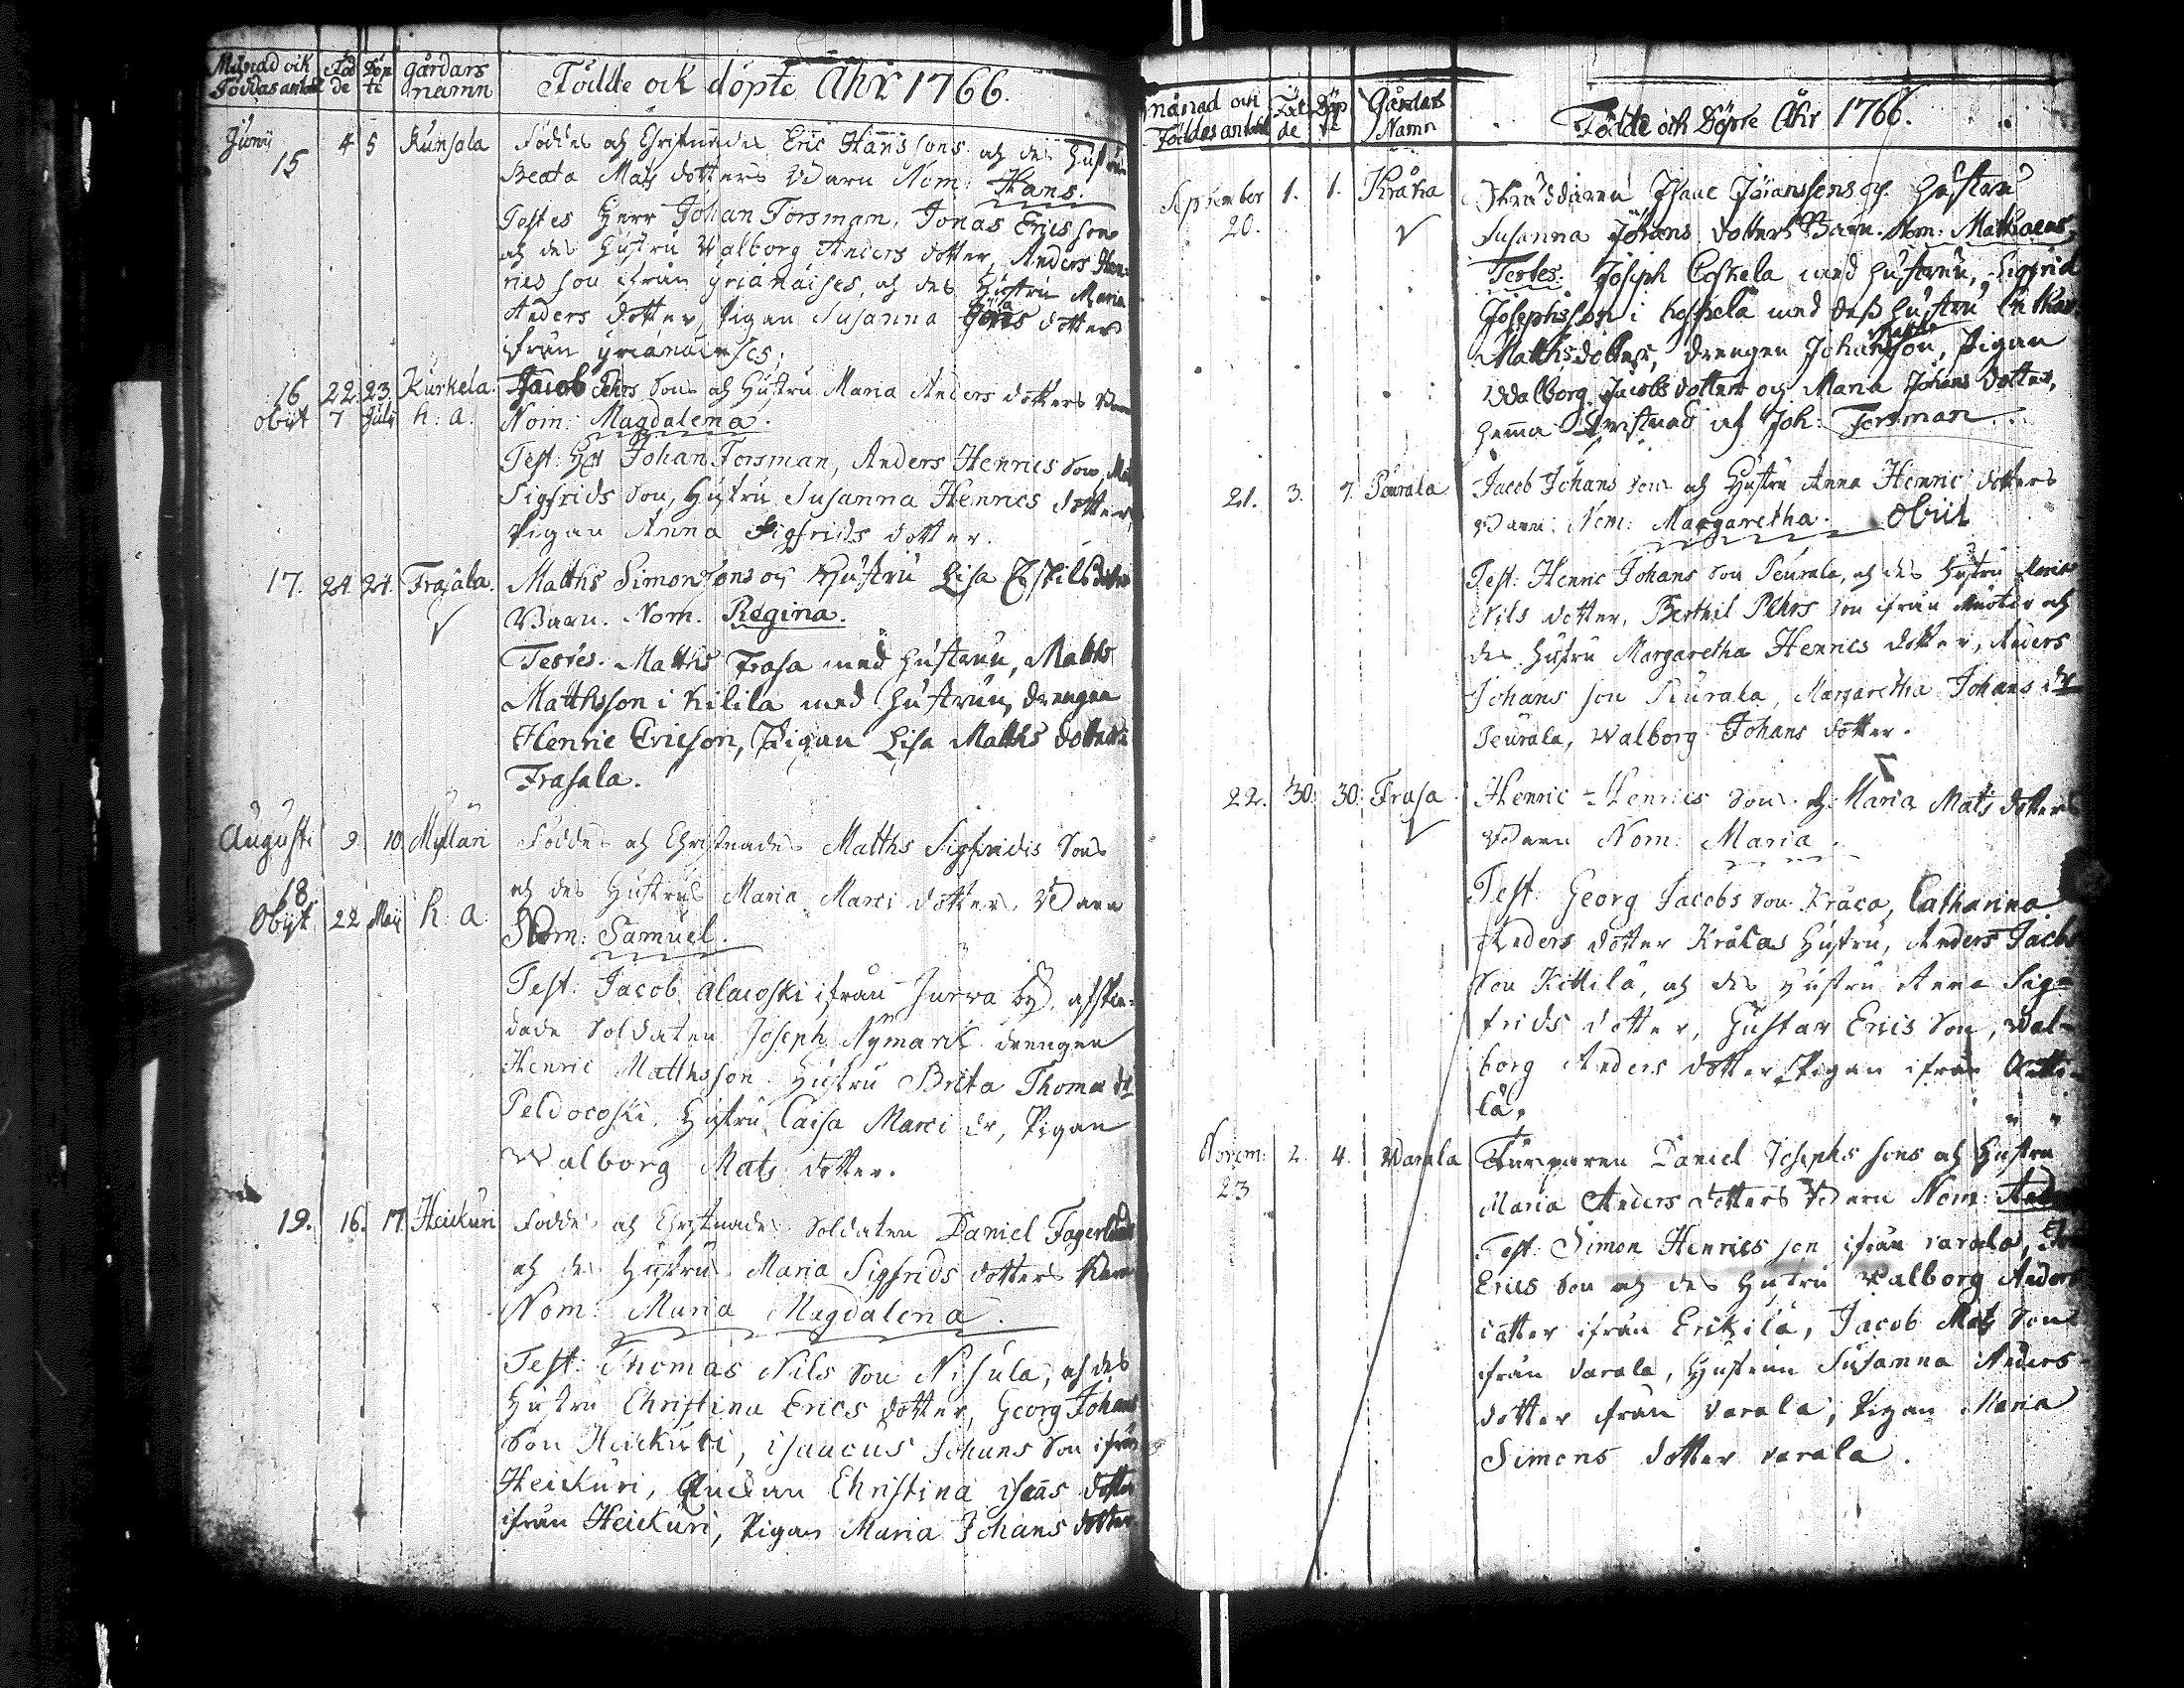 Månad ock Föddas antal Föd de Döp te gårdars namn Födde ock döpte Åhr 1766.
Junii 4 5 Kunsala Föddes och Christnades Eric Hanssons och des Hustru
15 Beata Mats dotters Barn Nom: Hans.
Testes Herr Johan Forsman, Jonas Erics son
och des Hustru Walborg Anders dotter, Anders Hen-
rics son ifrån yrjänäises, och des Hustru Maria
Anders dotter, Pigan Susanna dotter
ifrån
16 22. 23. Kurkela. Jacob Sons och Hustru Maria Anders dotters Barn
obiit 7 Julij h. a. Nom: Magdalena.
Test: Hr Johan Forsman, Anders Henrics Son,
Sigfrids Son, Hustru Susanna Henrics dotter,
Pigan Anna Sigfrids dotter.
17. 24. 24. Frasala. Matths Simonsons och Hustru Lisa Eskils dotter
Barn. Nom. Regina.
Testes. Matths Frasa med hustrun, Matths
Matthsson i Kilila med hustrun, drengen
Henric Ericson, Pigan Lisa Matths dotter
Frasala.
Augusti 9 10 Myllari Föddes och Christnades Matths Sigfridis Sons
18 och des Hustrus Maria Marci dotters Barn
Obijt 22 Maij h. a. Nom: Samuel.
Test: Jacob Alacoski ifrån Jurva by, afske-
dade Soldaten Joseph Nymark drengen
Henric Matthsson Hustru Brita Thomæ dr
Peldocoski. Hustru Caisa Marci dr, Pigan
Walborg Mats dotter.
19. 16. 17. Heickuri Föddes och Christnades Soldaten Daniel Fagerlund
och des Hustrus Maria Sigfrids dotters Barn
Nom: Maria Magdalena.
Test: Thomas Nils Son Nisula, och des
Hustru Christina Erics dotter, Georg Johans
Son Heickuri, isaacus Johans Son ifrån
Heickuri, Christina dotter
ifrån Heickuri, Pigan Maria Johans dotter.
månad och Föddas antal Föd de Döp te Gårdars Namn Födde och Döpte Åhr 1766.
September 1. 1. Kråka Skräddaren Isaac Jöranssons och hustru
20. Susanna Jörans dotters Barn. Nom: Mathaeus,
Testes. Joseph Keskela med hustrun, Sigfrid
Josephsson i Keskela med dess hustru
Matthsdotter, drengen Johan son, Pigan
Walborg Jacobs dotter och Maria Johans dotter,
hemma Christnad af Joh: Forsman
21. 3. 7. Peurala Jacob Johans Sons och Hustru Anna Henric dotters
Barn Nom: Margaretha. Obiit
Test: Henric Johans Son Peurala, och des Hustru
Nils dotter, Berthil Pehrs Son ifrån och
des Hustru Margaretha Henrics dotter, Anders
Johans son Peurala, Margaretha Johans dr
Peurala, Walborg Johans dotter.
22. 30. 30. Frasa Henric Henrics Sons och Maria Mats dotters
Barn Nom: Maria.
Test: Georg Jacobs Son Kråca, Catharina
Anders dotter Kråkas Hustru, Anders Jacobs
Son Kittilä, och des Hustru Anna Sig-
frids dotter, Gustav Erics Son, Wal-
borg Anders dotter, Pigan ifrån Kitti-
lä,
Novem: 2. 4. Warala Daniel Josephs sons och Hustru
23 Maria Anders dotters Barn Nom:
Test: Simon Henrics son ifrån varala,
Erics Son och des Hustru Walborg Anders
dotter ifrån Erikilä, Jacob Mats Son
ifrån Varala, Hustrun Susanna Anders
dotter ifrån Varala, Pigan Maria
Simons dotter varala.